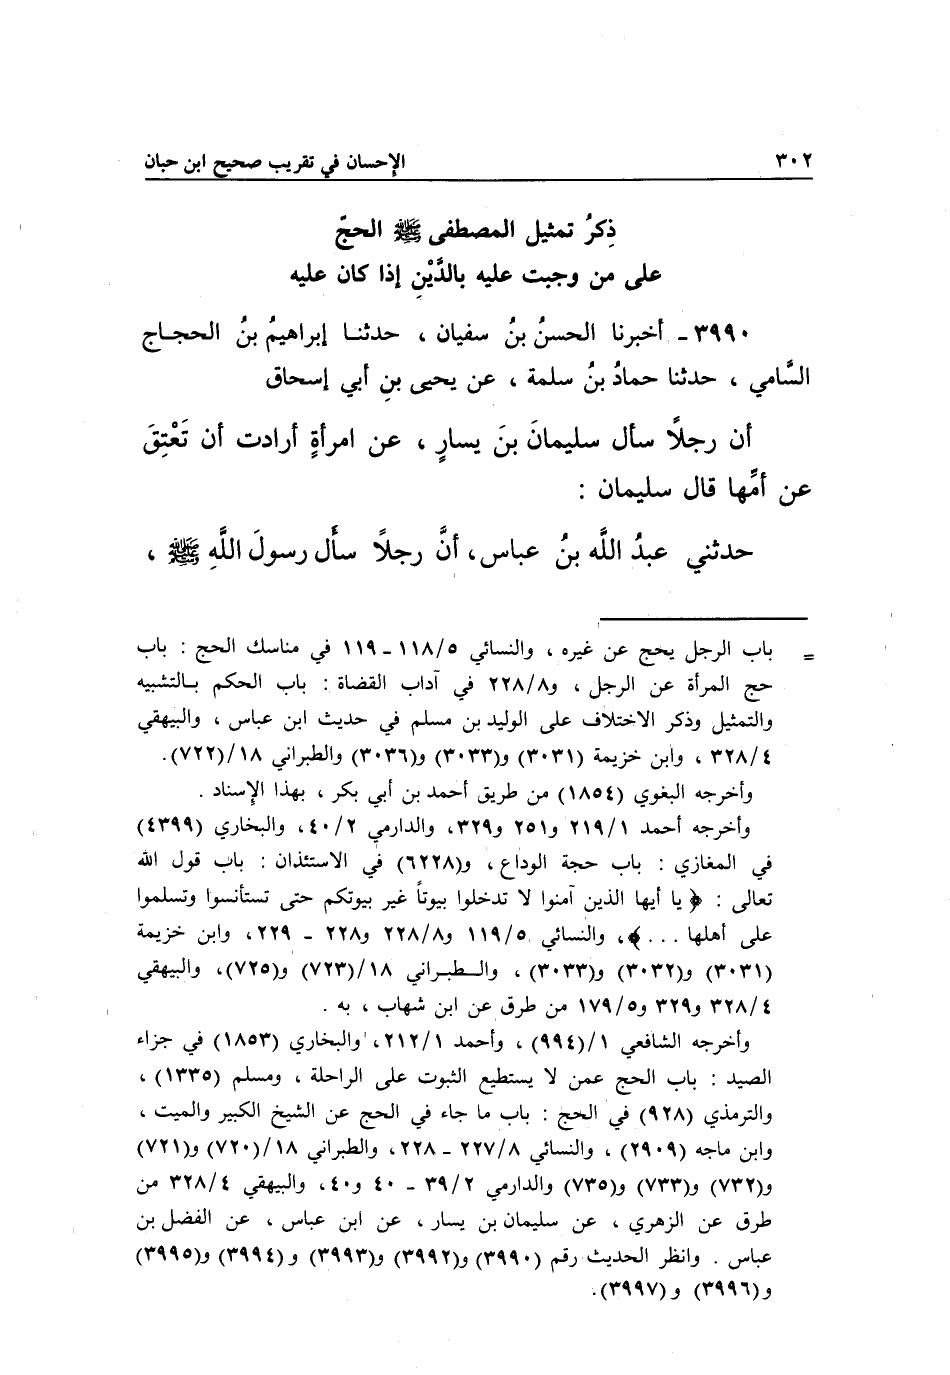 ٣٠٢ الإحسان في تقريب صحيح ابن حبان
ذِكرُ تمثيل المصطفى ﷺ الحجّ
على من وجبت عليه بالدَّيْنِ إذا كان عليه
٣٩٩٠ ـ أخبرنا الحسنُ بنُ سفيان ، حدثنا إبراهيمُ بنُ الحجاج
السَّامي ، حدثنا حمادُ بنُ سلمة ، عن يحيى بنِ أبي إسحاق
أن رجلاً سأل سليمانَ بنَ يسارٍ ، عن امرأةٍ أرادت أن تَعْتِقَ
عن أمِّها قال سليمان :
حدثني عبدُ اللَّه بنُ عباس، أنَّ رجلاً سأَل رسولَ اللَّهِ ﷺ ،
= باب الرجل يحج عن غيره ، والنسائي ١١٨/٥ ـ ١١٩ في مناسك الحج : باب
حج المرأة عن الرجل ، و٢٢٨/٨ في آداب القضاة : باب الحكم بالتشبيه
والتمثيل وذكر الاختلاف على الوليد بن مسلم في حديث ابن عباس ، والبيهقي
٣٢٨/٤ ، وابن خزيمة (٣٠٣١) و(٣٠٣٣) و(٣٠٣٦) والطبراني ١٨/(٧٢٢).
وأخرجه البغوي (١٨٥٤) من طريق أحمد بن أبي بكر ، بهذا الإسناد .
وأخرجه أحمد ٢١٩/١ و٢٥١ و٣٢٩، والدارمي ٤٠/٢، والبخاري (٤٣٩٩)
في المغازي : باب حجة الوداع ، و(٦٢٢٨) في الاستئذان : باب قول الله
تعالى : ﴿ يا أيها الذين آمنوا لا تدخلوا بيوتاً غير بيوتكم حتى تستأنسوا وتسلموا
على أهلها ...﴾، والنسائي ١١٩/٥ و٢٢٨/٨ و٢٢٨ ـ ٢٢٩، وابن خزيمة
(٣٠٣١) و(٣٠٣٢) و(٣٠٣٣) ، والطبراني ١٨/(٧٢٣) و(٧٢٥)، والبيهقي
٣٢٨/٤ و٣٢٩ و١٧٩/٥ من طرق عن ابن شهاب ، به .
وأخرجه الشافعي ١/(٩٩٤) ، وأحمد ٢١٢/١، والبخاري (١٨٥٣) في جزاء
الصيد : باب الحج عمن لا يستطيع الثبوت على الراحلة ، ومسلم (١٣٣٥) ،
والترمذي (٩٢٨) في الحج : باب ما جاء في الحج عن الشيخ الكبير والميت ،
وابن ماجه (٢٩٠٩) ، والنسائي ٢٢٧/٨ ـ ٢٢٨، والطبراني ١٨/(٧٢٠) و(٧٢١)
و(٧٣٢) و(٧٣٣) و(٧٣٥) والدارمي ٣٩/٢ ـ ٤٠ و٤٠، والبيهقي ٣٢٨/٤ من
طرق عن الزهري ، عن سليمان بن يسار ، عن ابن عباس ، عن الفضل بن
عباس . وانظر الحديث رقم (٣٩٩٠) و(٣٩٩٢) و(٣٩٩٣) و (٣٩٩٤) و(٣٩٩٥)
و(٣٩٩٦) و (٣٩٩٧).